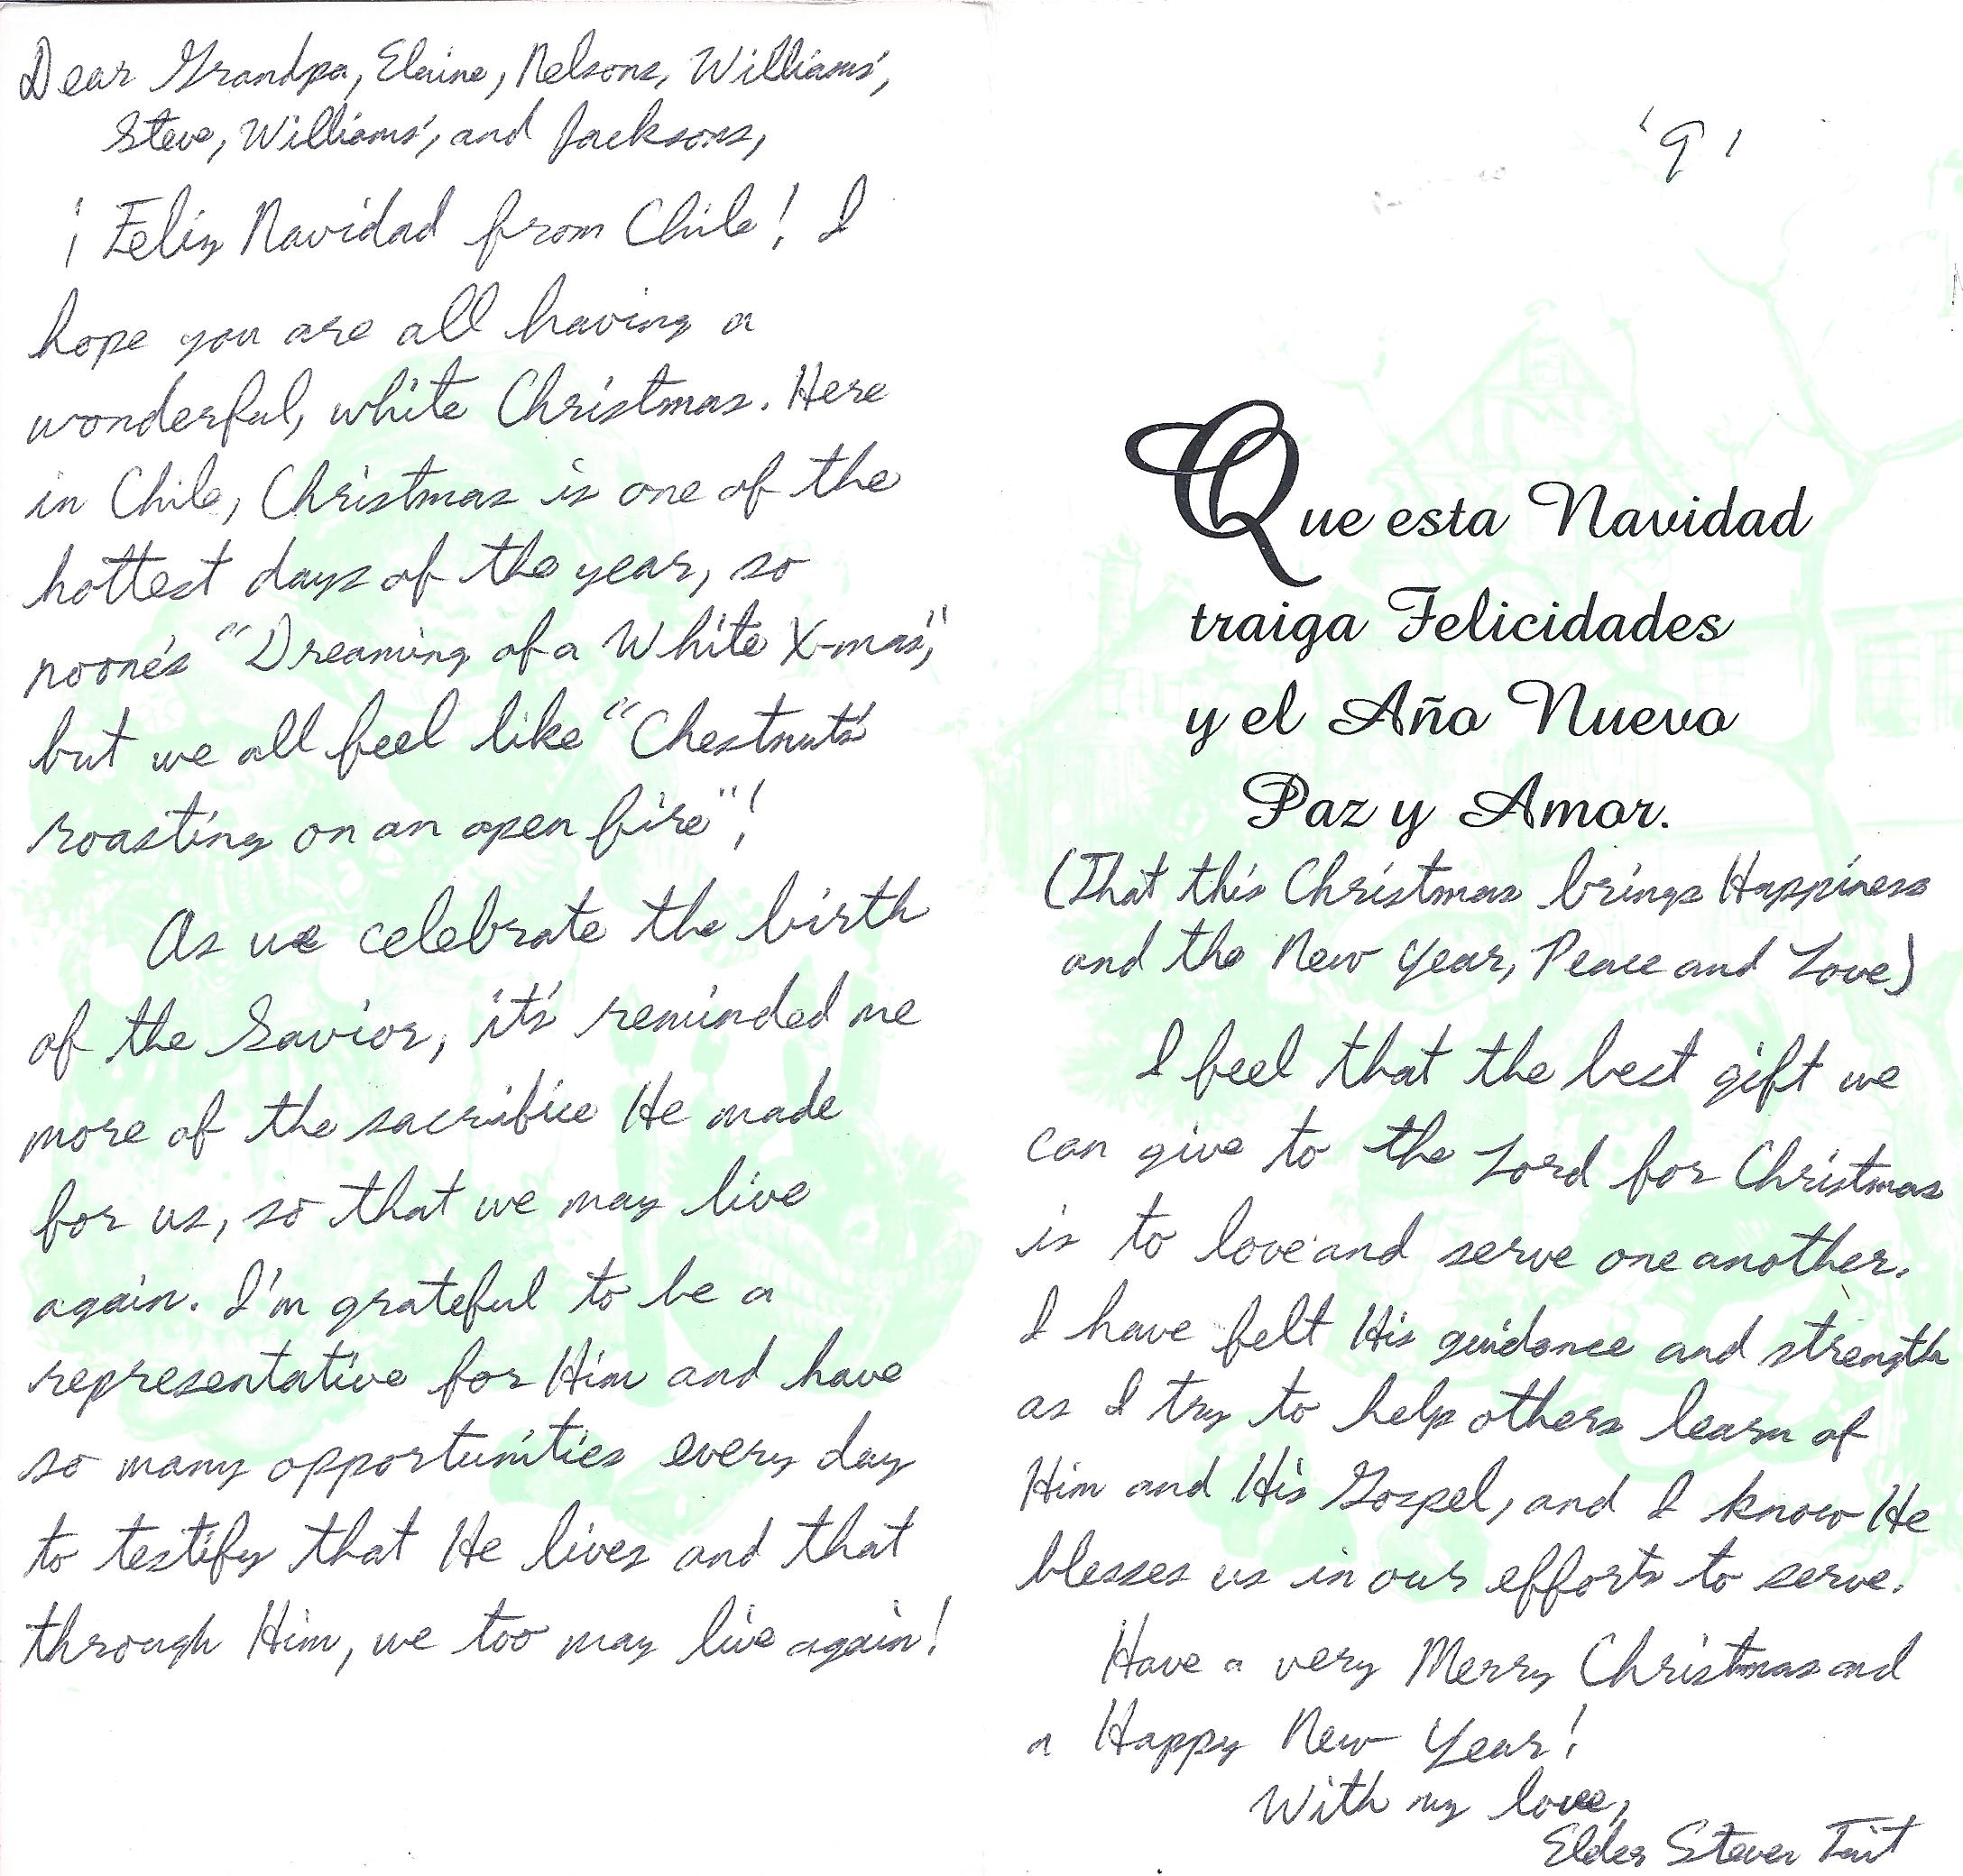 Dear Grandpa, Elaine, Nelsons, Williams',
Steve, Williams', and Jacksons,
¡Feliz Navidad from Chile! I
hope you are all having a
wonderful, white Christmas. Here
in Chile, Christmas is one of the
hottest days of the year, so
noone's "Dreaming of a White X-mas",
but we all feel like "Chestnuts
roasting on an open fire"!
As we celebrate the birth
of the Savior, it's reminded me
more of the sacrifice He made
for us, so that we may live
again. I'm grateful to be a
representative for Him and have
so many opportunities every day
to testify that He lives and that
through Him, we too may live again!
'91
Que esta Navidad
traiga Felicidades
y el Año Nuevo
Paz y Amor.
(That this Christmas brings Happiness
and the New Year, Peace and Love)
I feel that the best gift we
can give to the Lord for Christmas
is to love and serve one another.
I have felt His guidance and strength
as I try to help others learn of
Him and His Gospel, and I know He
blesses us in our efforts to serve.
Have a very Merry Christmas and
a Happy New Year!
With my love,
Elder Steven Tait